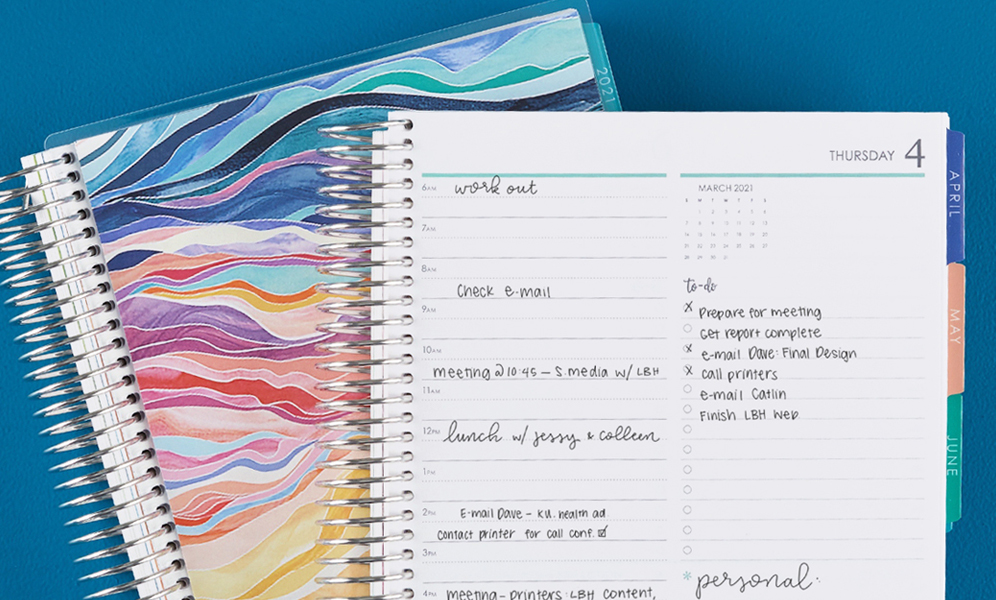 2021
THURSDAY 4
6AM work out
7AM
8AM
Check e-mail
9AM
10AM
meeting @ 10:45 – S.media w/ LBH
11AM
12PM lunch w/ jessy & colleen
1PM
2PM E-mail Dave – KU. health ad
contact printer for call conf.
3PM
4PM meeting – printers: LBH content,
MARCH 2021
S M T W T F S
1 2 3 4 5 6
7 8 9 10 11 12 13
14 15 16 17 18 19 20
21 22 23 24 25 26 27
28 29 30 31
to-do
x Prepare for meeting
Get report complete
x e-mail Dave: Final Design
x call printers
e-mail Catlin
Finish LBH Web
*personal:
APRIL
MAY
JUNE